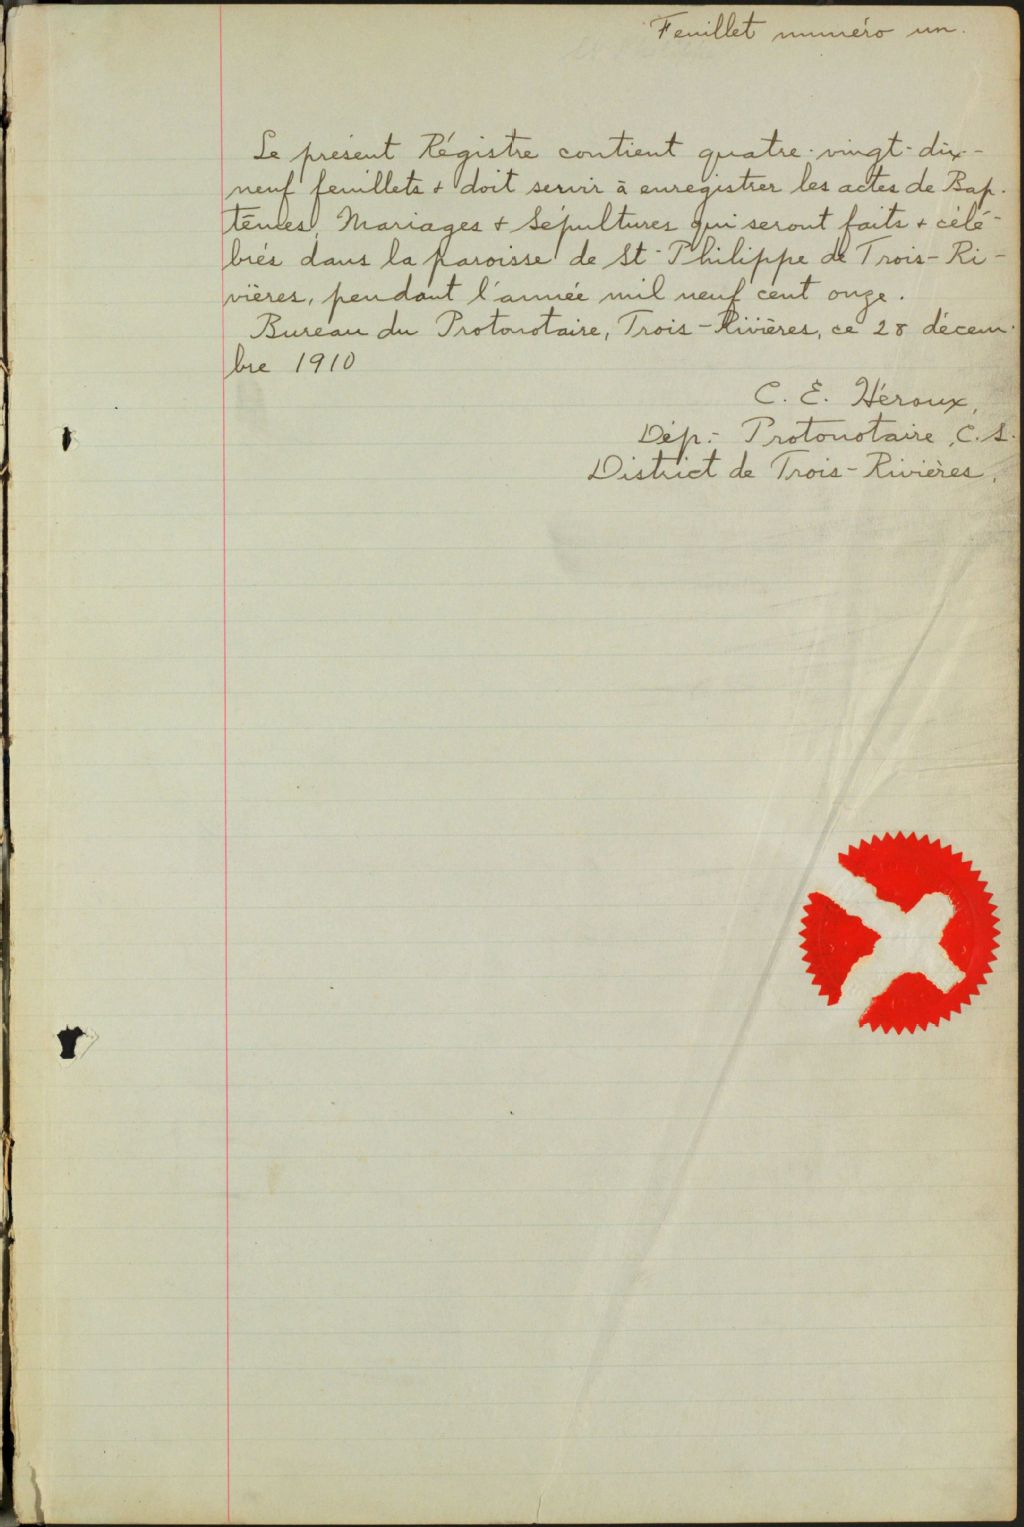 Feuillet numéro un.
Le présent Régistre contient quatre-vingt-dix-
neuf feuillets & doit servir à enregistrer les actes de Bap-
têmes, Mariages & Sépultures qui seront faits & célé-
brés dans la paroisse de St-Philippe de Trois-Ri-
vières, pendant l'année mil neuf cent onze.
Bureau du Protonotaire, Trois-Rivières, ce 28 décem-
bre 1910
C. E. Héroux,
Dép.- Protonotaire, C.S.
District de Trois-Rivières.